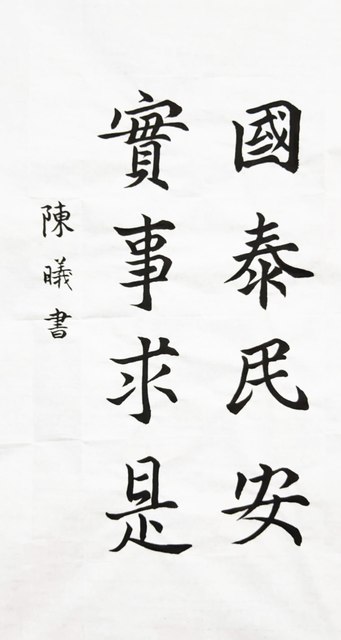 國泰民安
實事求是
陳曦書